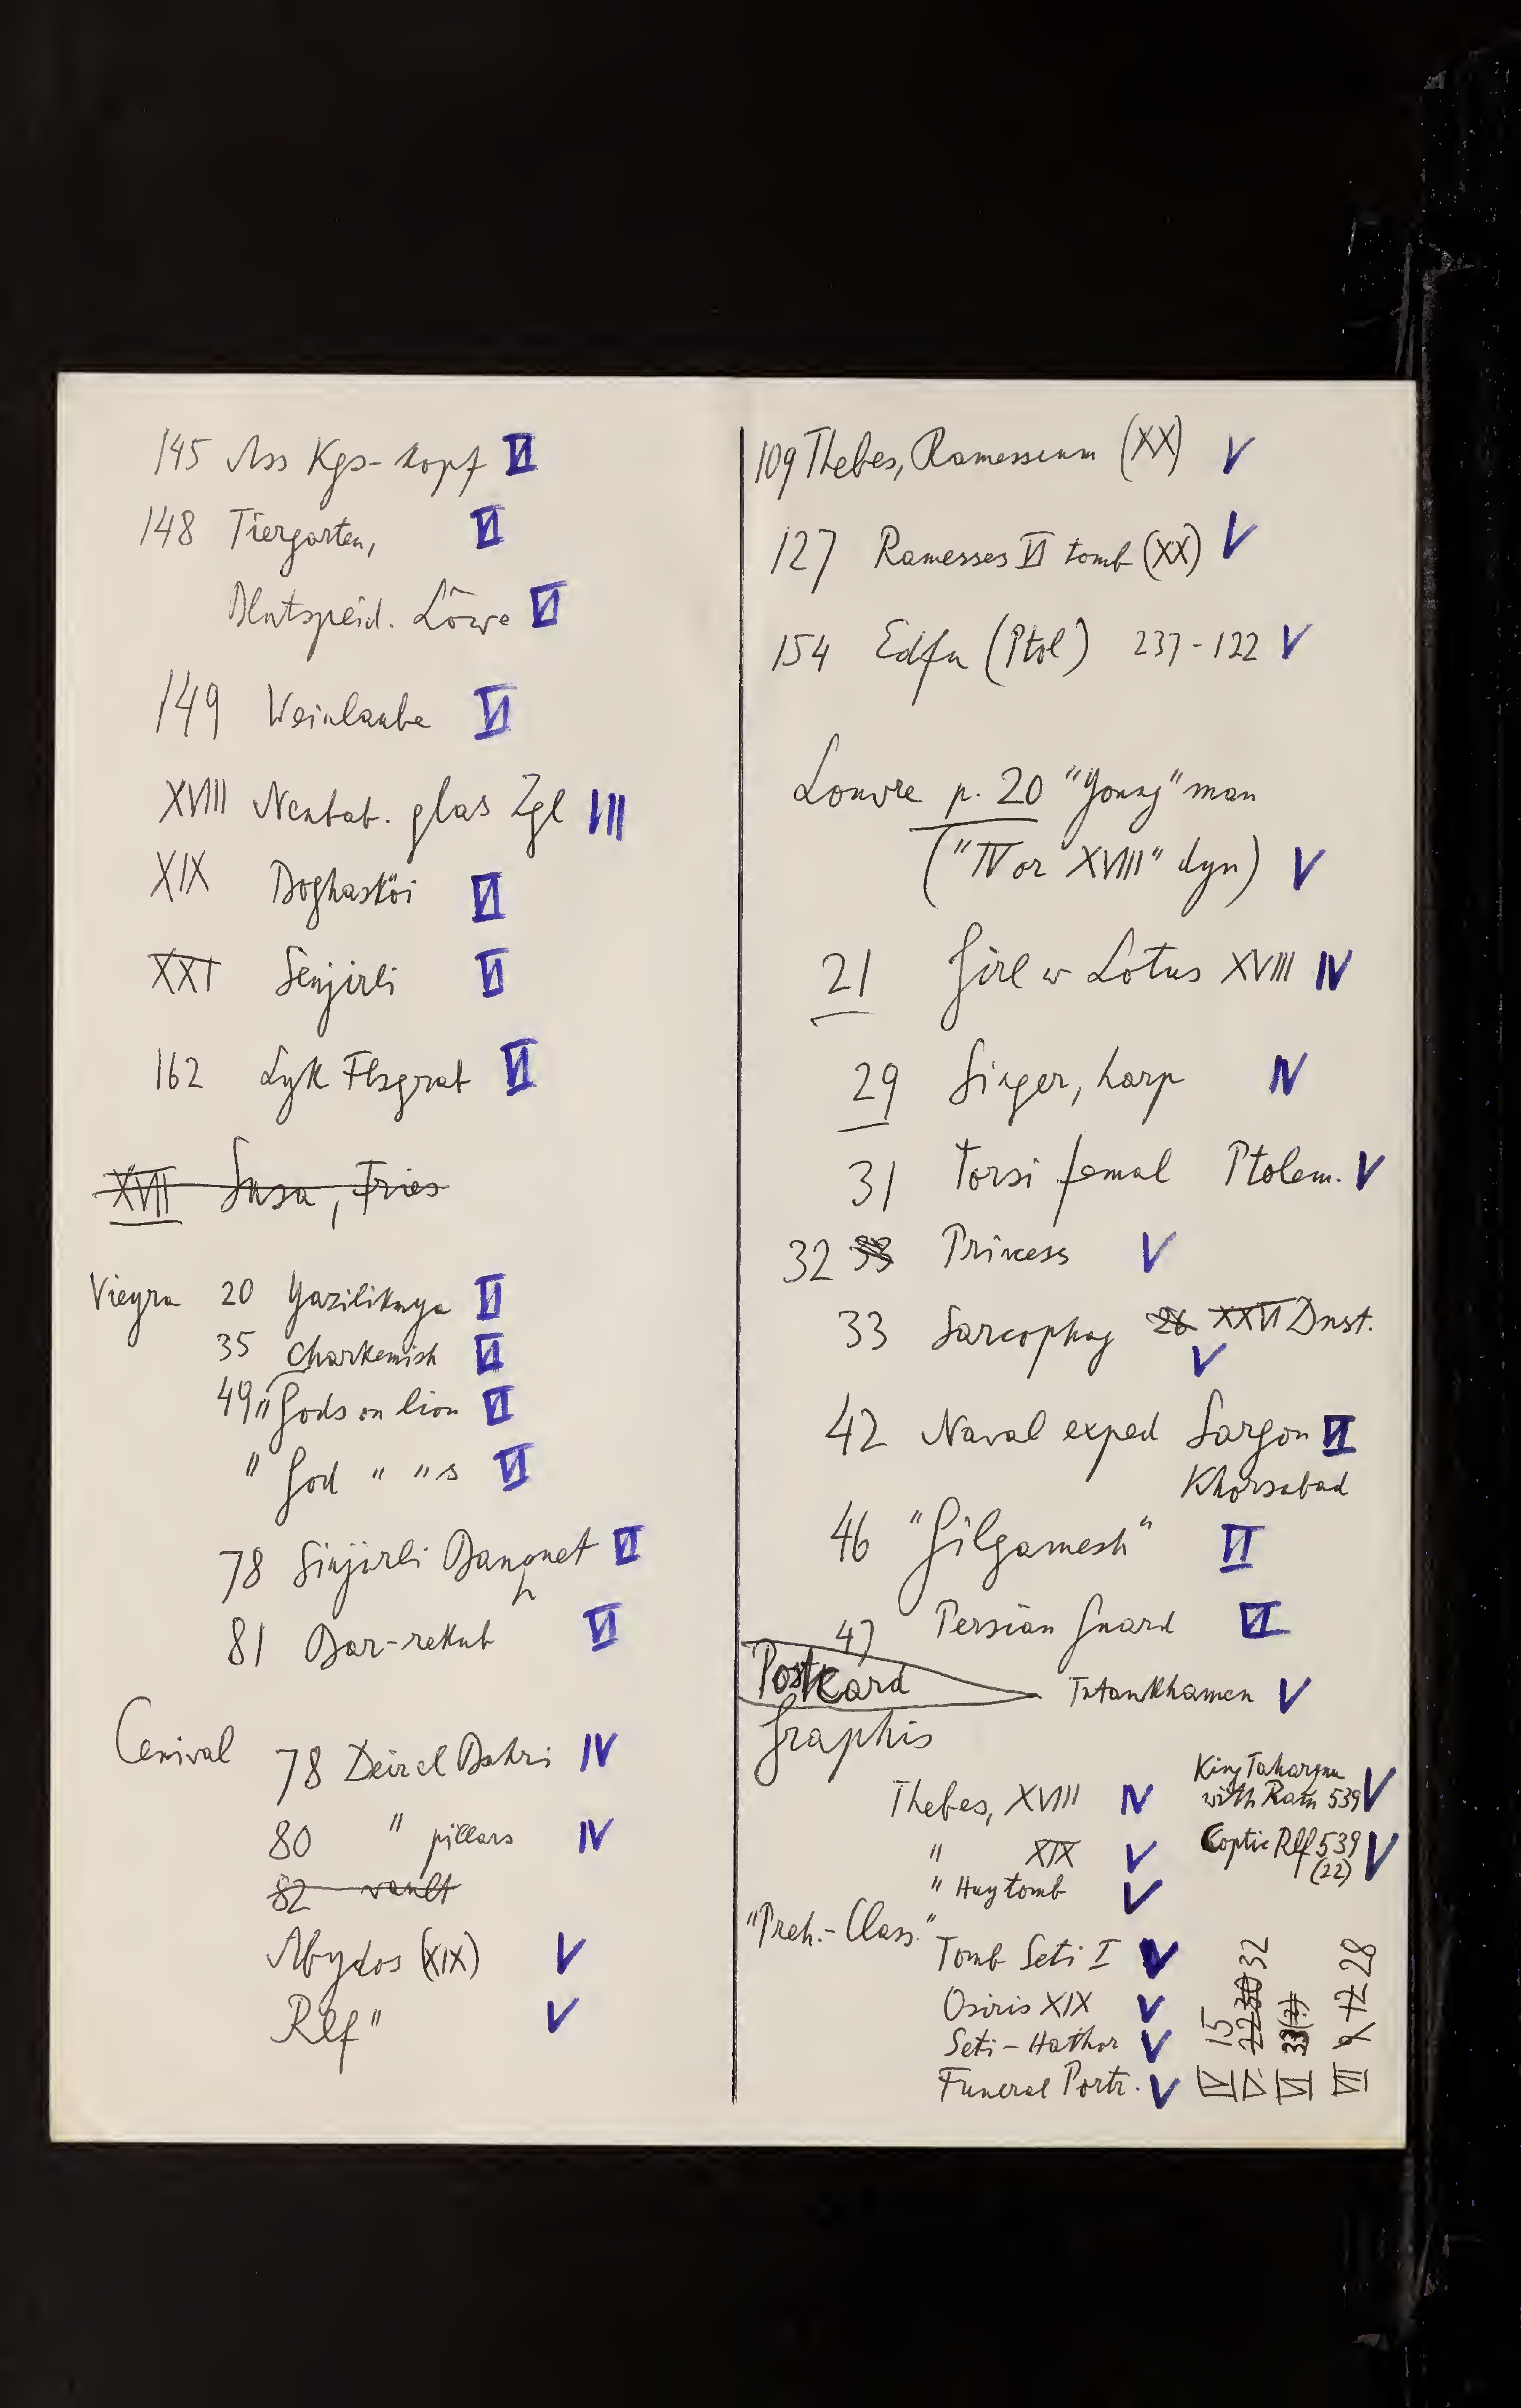 145 Ass Kgs-kopf VI
148 Tiergarten, VI
Blutspeid. Löwe VI
149 Weinlaube VI
XVIII Neubab. glas Zgl III
XIX Boghasköi VI
XXI Senjirli VI
162 Lyk Flsgrab VI
XVII Susa, Fries
Vieyra 20 Yazilikaya VI
35 Charkemish VI
49 " Gods on lion VI
" God " "s VI
78 Sinjirli Banquet VI
81 Bar-rekub VI
Cenival 78 Deir el Bahri IV
80 " pillars IV
82 vault
Abydos (XIX) V
Rlf " V
109 Thebes, Ramesseum (XX) V
127 Ramesses VI tomb (XX) V
154 Edfu (Ptol) 237-122 V
Louvre p. 20 "Young" man
("IV or XVIII" dyn) V
21 Girl w Lotus XVIII IV
29 Singer, harp IV
31 Torsi femal Ptolem. V
32 33 Princess V
33 Sarcophag 26 XXVI Dnst.
V
42 Naval exped Sargon VI
Khorsabad
46 "Gilgamesh" VI
47 Persian Guard VI
Postcard Tutankhamen V
Graphis
Thebes, XVIII IV
" XIX V
" Huy tomb V
King Taharqua
with Ram 539 V
Coptic Rlf 539 V
(22)
"Preh.-Class."
Tomb Seti I V
Osiris XIX V
Seti-Hathor V
Funeral Portr. V
IV 15
V 22 30 32
VI 33(?)
VII 9 12 28